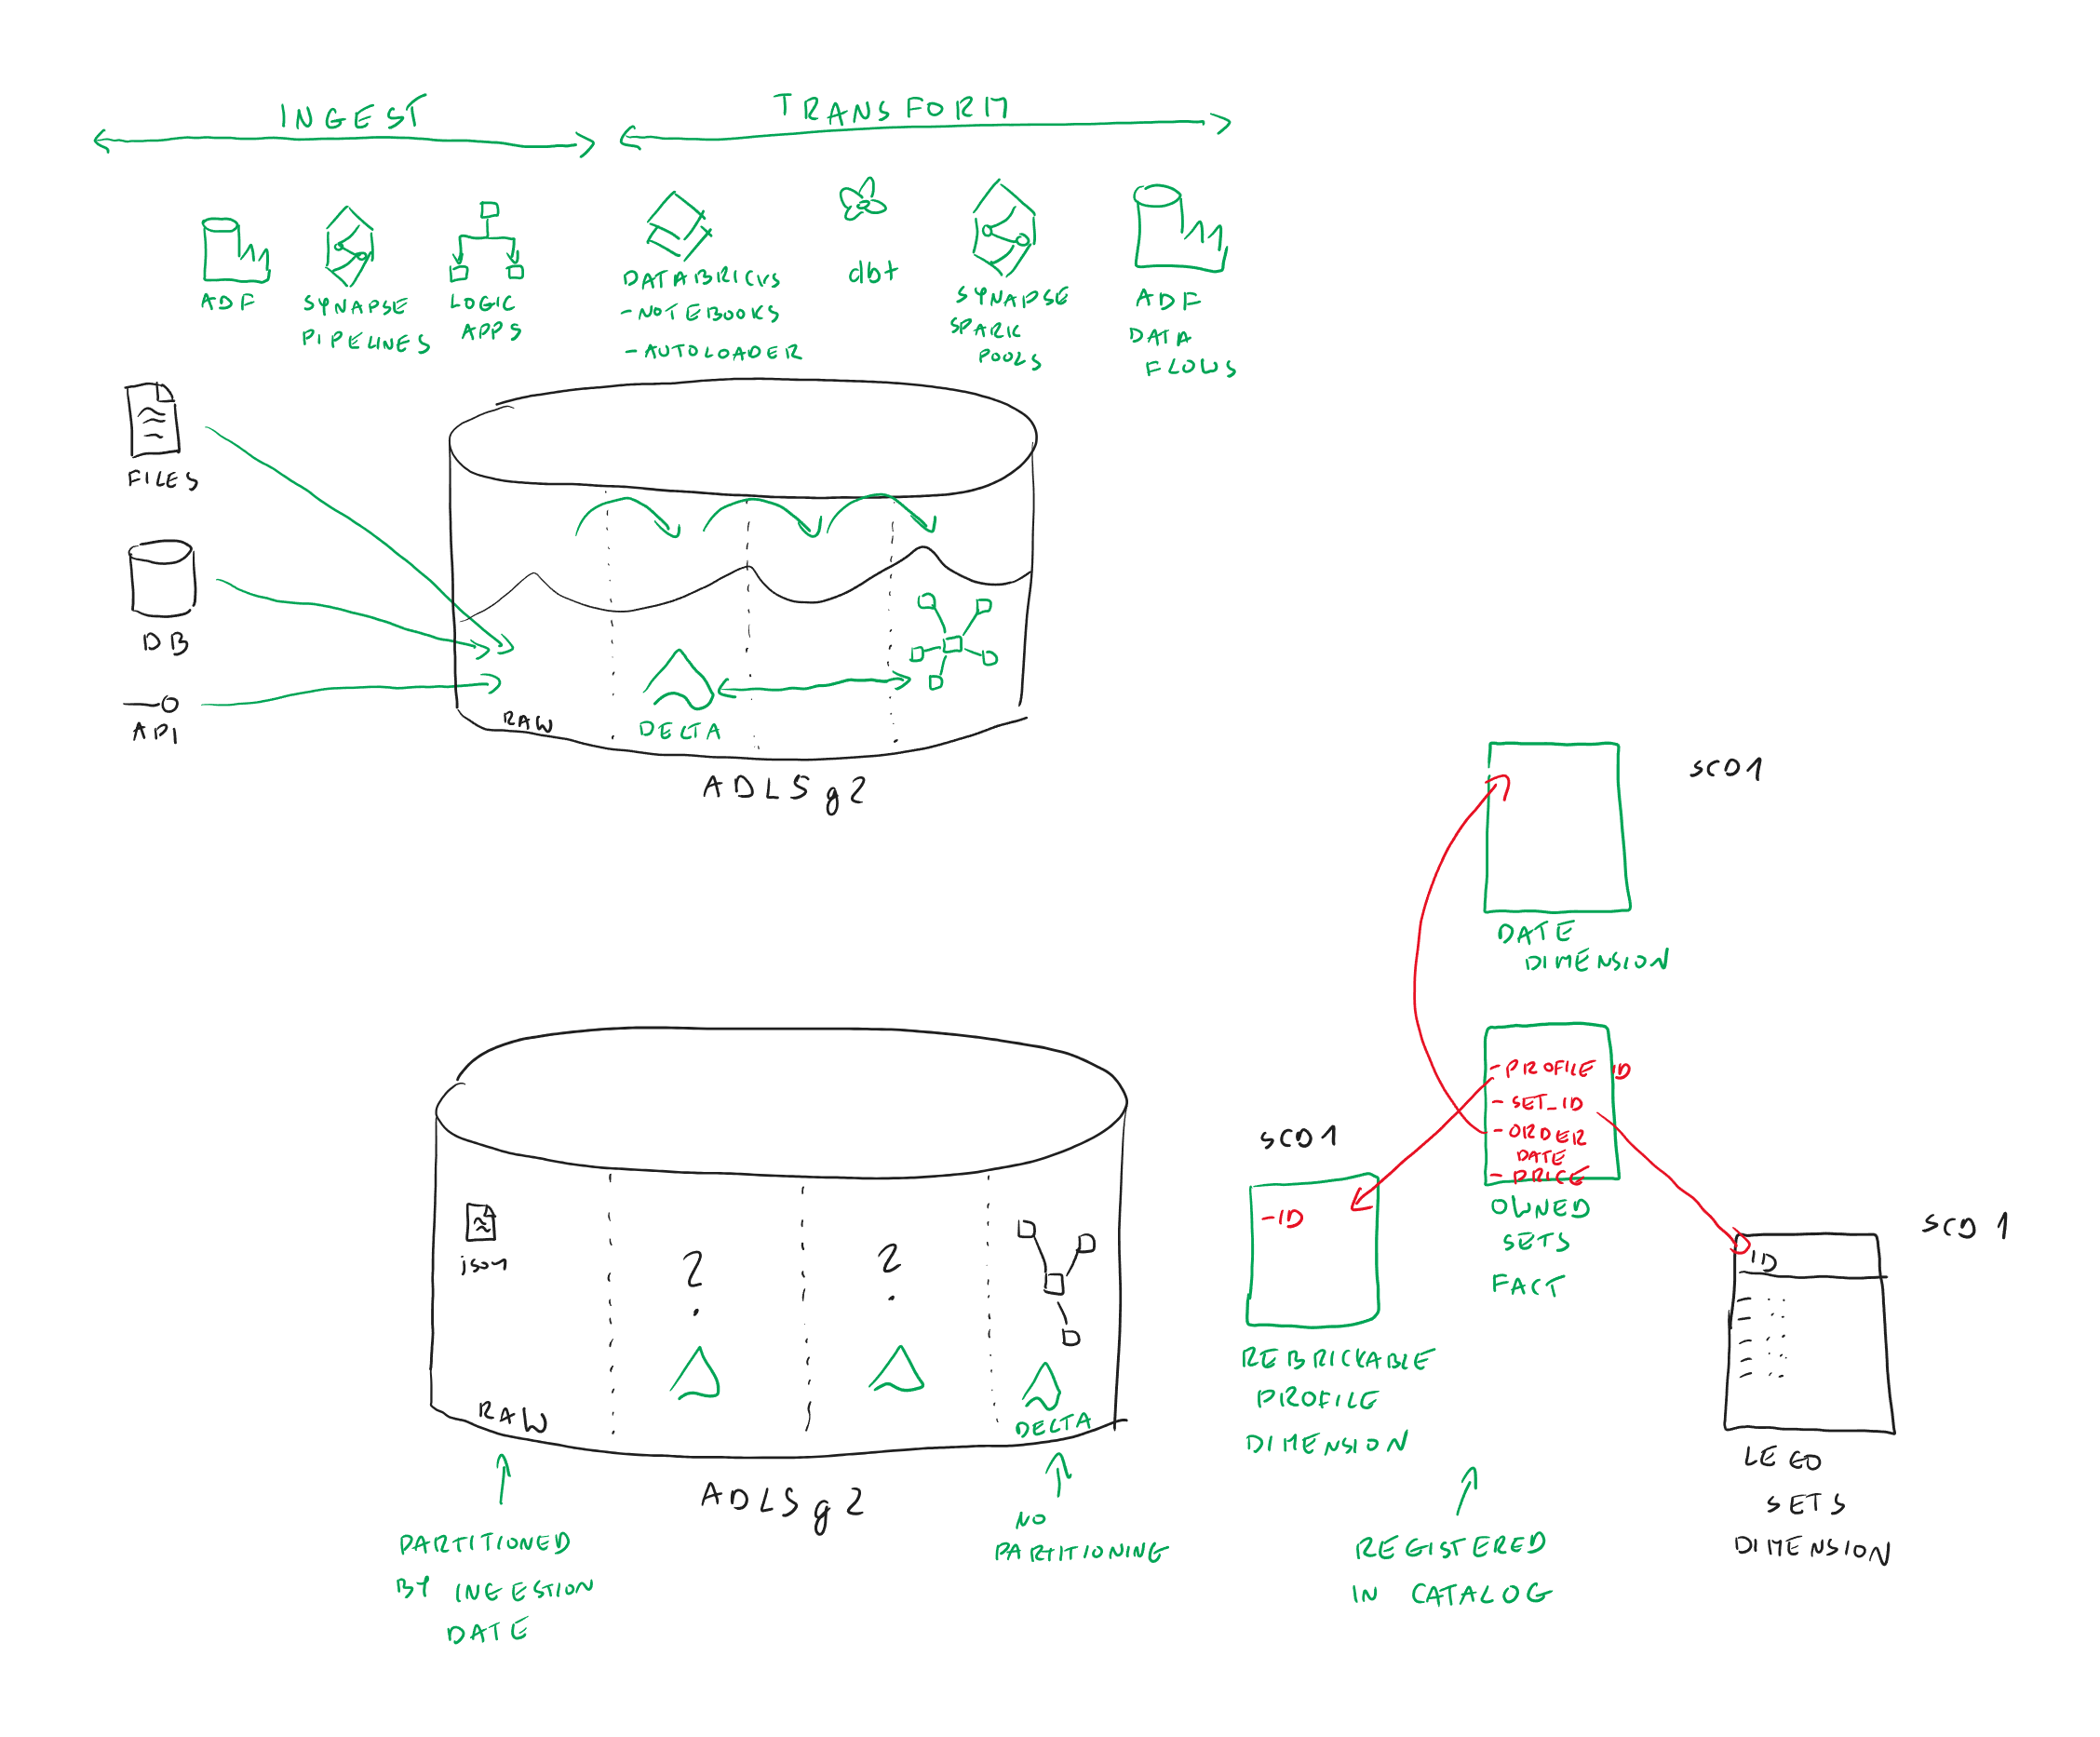 INGEST
TRANSFORM
ADF
SYNAPSE
PIPELINES
LOGIC
APPS
DATABRICKS
-NOTEBOOKS
-AUTOLOADER
dbt
SYNAPSE
SPARK
POOLS
ADF
DATA
FLOWS
FILES
DB
API
RAW
DELTA
ADLS g2
SCD1
DATE
DIMENSION
-PROFILE ID
-SET_ID
-ORDER
DATE
-PRICE
OWNED
SETS
FACT
SCD1
-ID
REBRICKABLE
PROFILE
DIMENSION
SCD1
ID
LEGO
SETS
DIMENSION
REGISTERED
IN CATALOG
json
?
?
RAW
DELTA
ADLS g2
PARTITIONED
BY INGESTION
DATE
NO
PARTITIONING